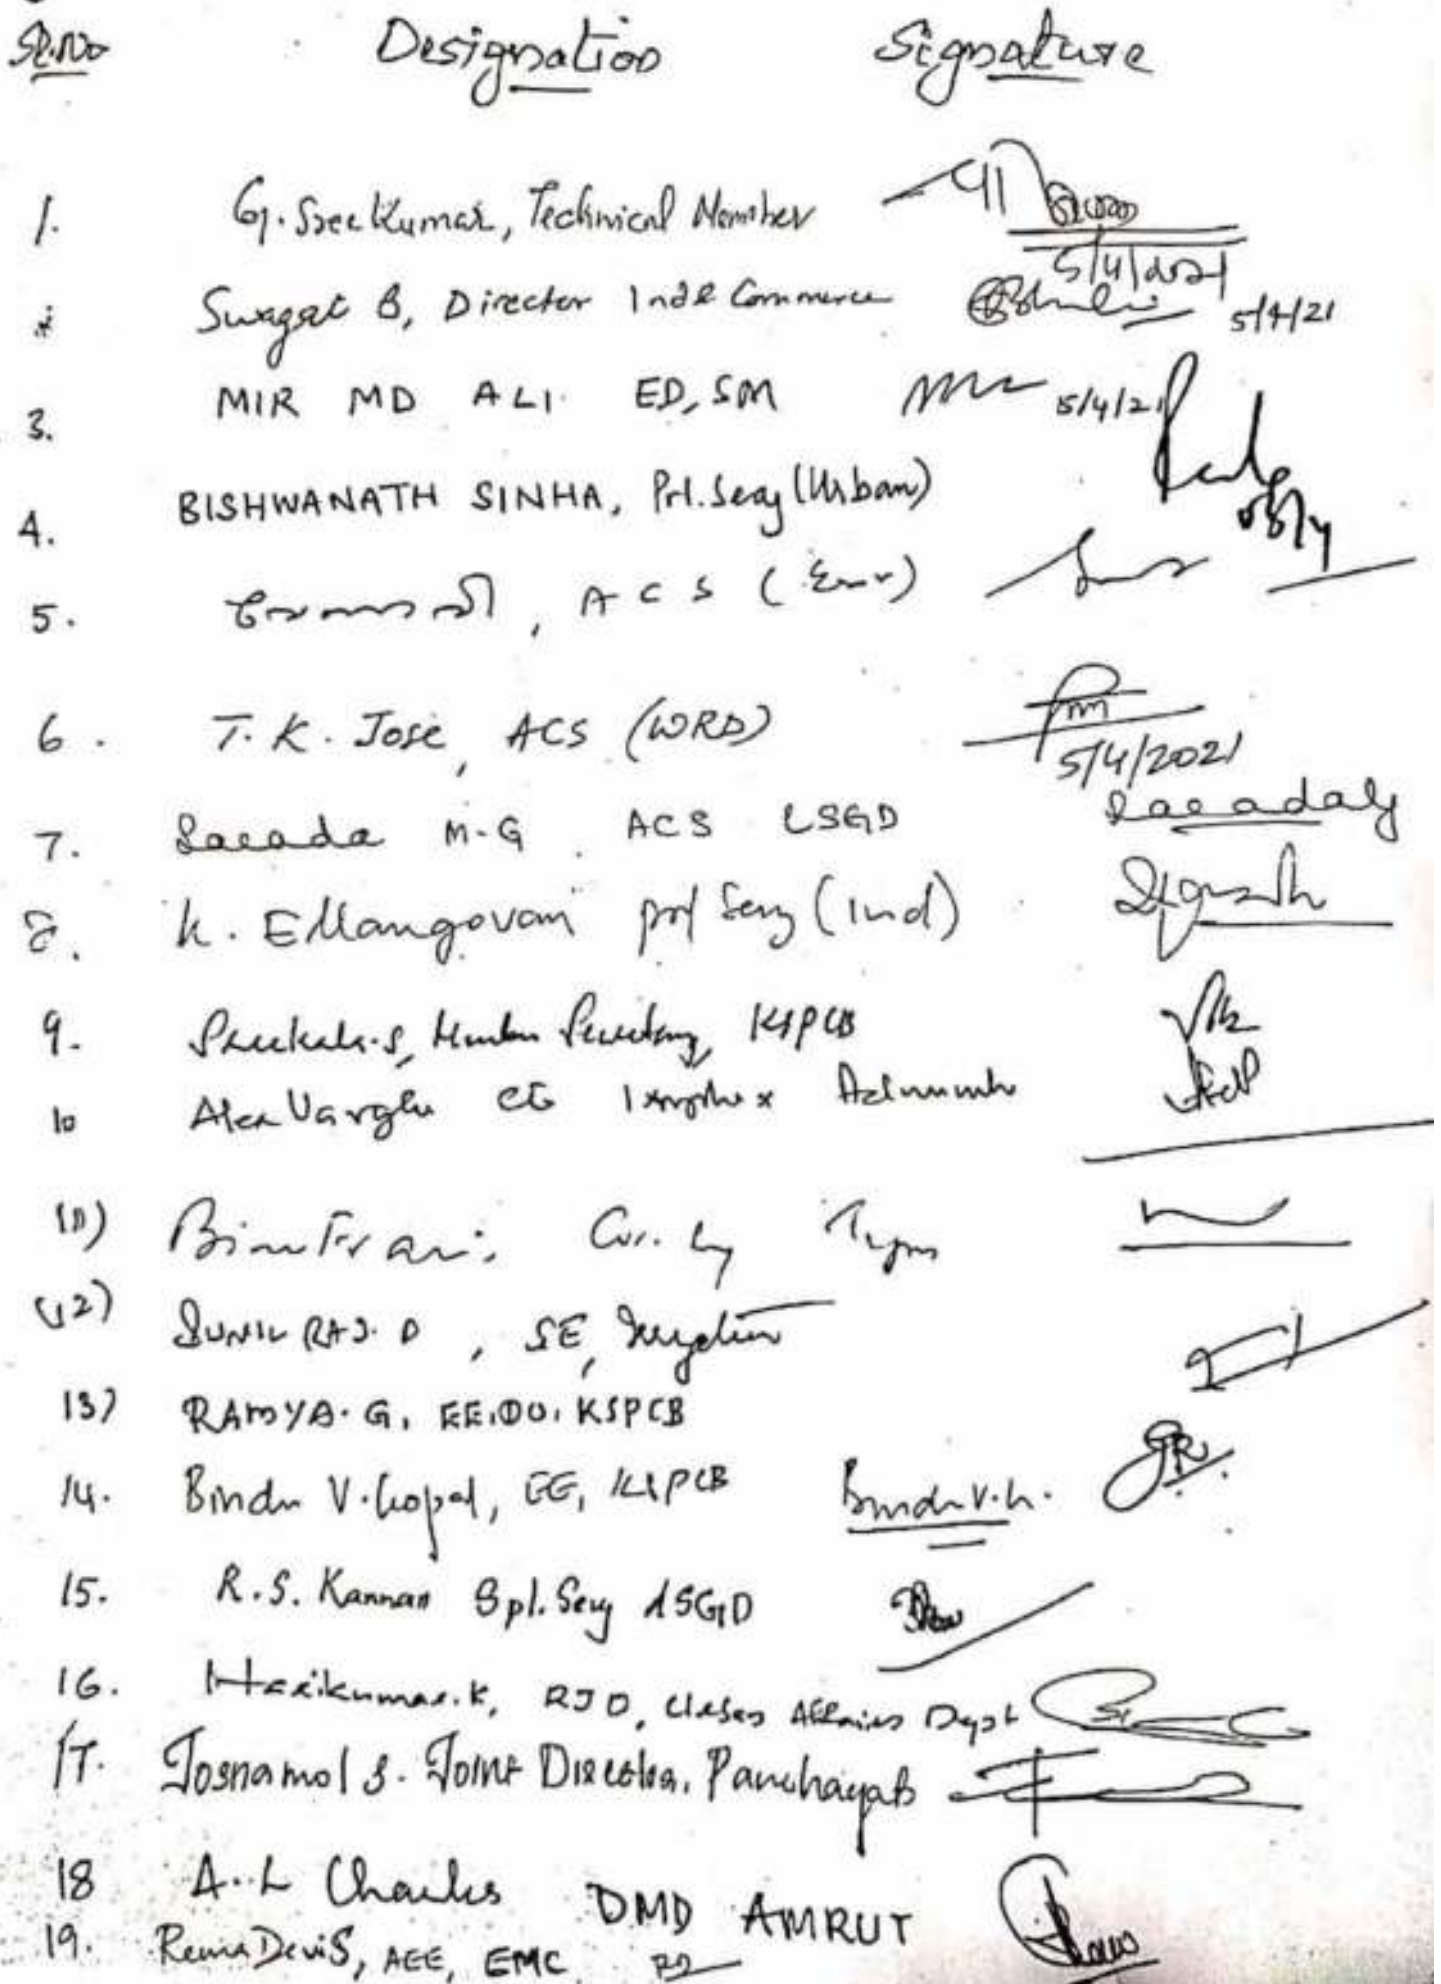 Sl.No Designation Signature
1. G. Sreekumar, Technical Member 5/4/2021
Swagat B, Director Ind & Commerce 5/4/21
3. MIR MD ALI. ED, SM 5/4/21
4. BISHWANATH SINHA, Prl. Secy (Urban) 05/4
5. , ACS (Env)
6. T. K. Jose, ACS (WRD) 5/4/2021
7. Sarada M.G. ACS LSGD
8. K. Ellangovan Prl Secy (Ind)
9. Sreekala.S, Member Secretary, KSPCB
10 Alex Varghese CE
11) Binu Francis
12) SUNIL RAJ. D, SE, Irrigation
13) RAMYA. G, EE, DO, KSPCB
14. Bindu V. Gopal, EE, KSPCB Bindu V.G.
15. R.S. Kannan Spl. Secy LSGD
16. Harikumar.K, RJD, Urban Affairs Dept
17. Josnamol S. Joint Director, Panchayat
18 A.L Charles DMD AMRUT
19. Rema Devi S, AEE, EMC